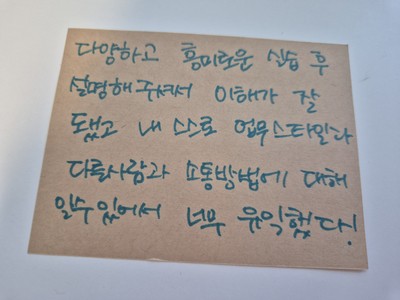 다양하고 흥미로운 실습 후
설명해주셔서 이해가 잘
됐고 내 스스로 업무스타일과
다른사람과 소통방법에 대해
알수있어서 너무 유익했다!